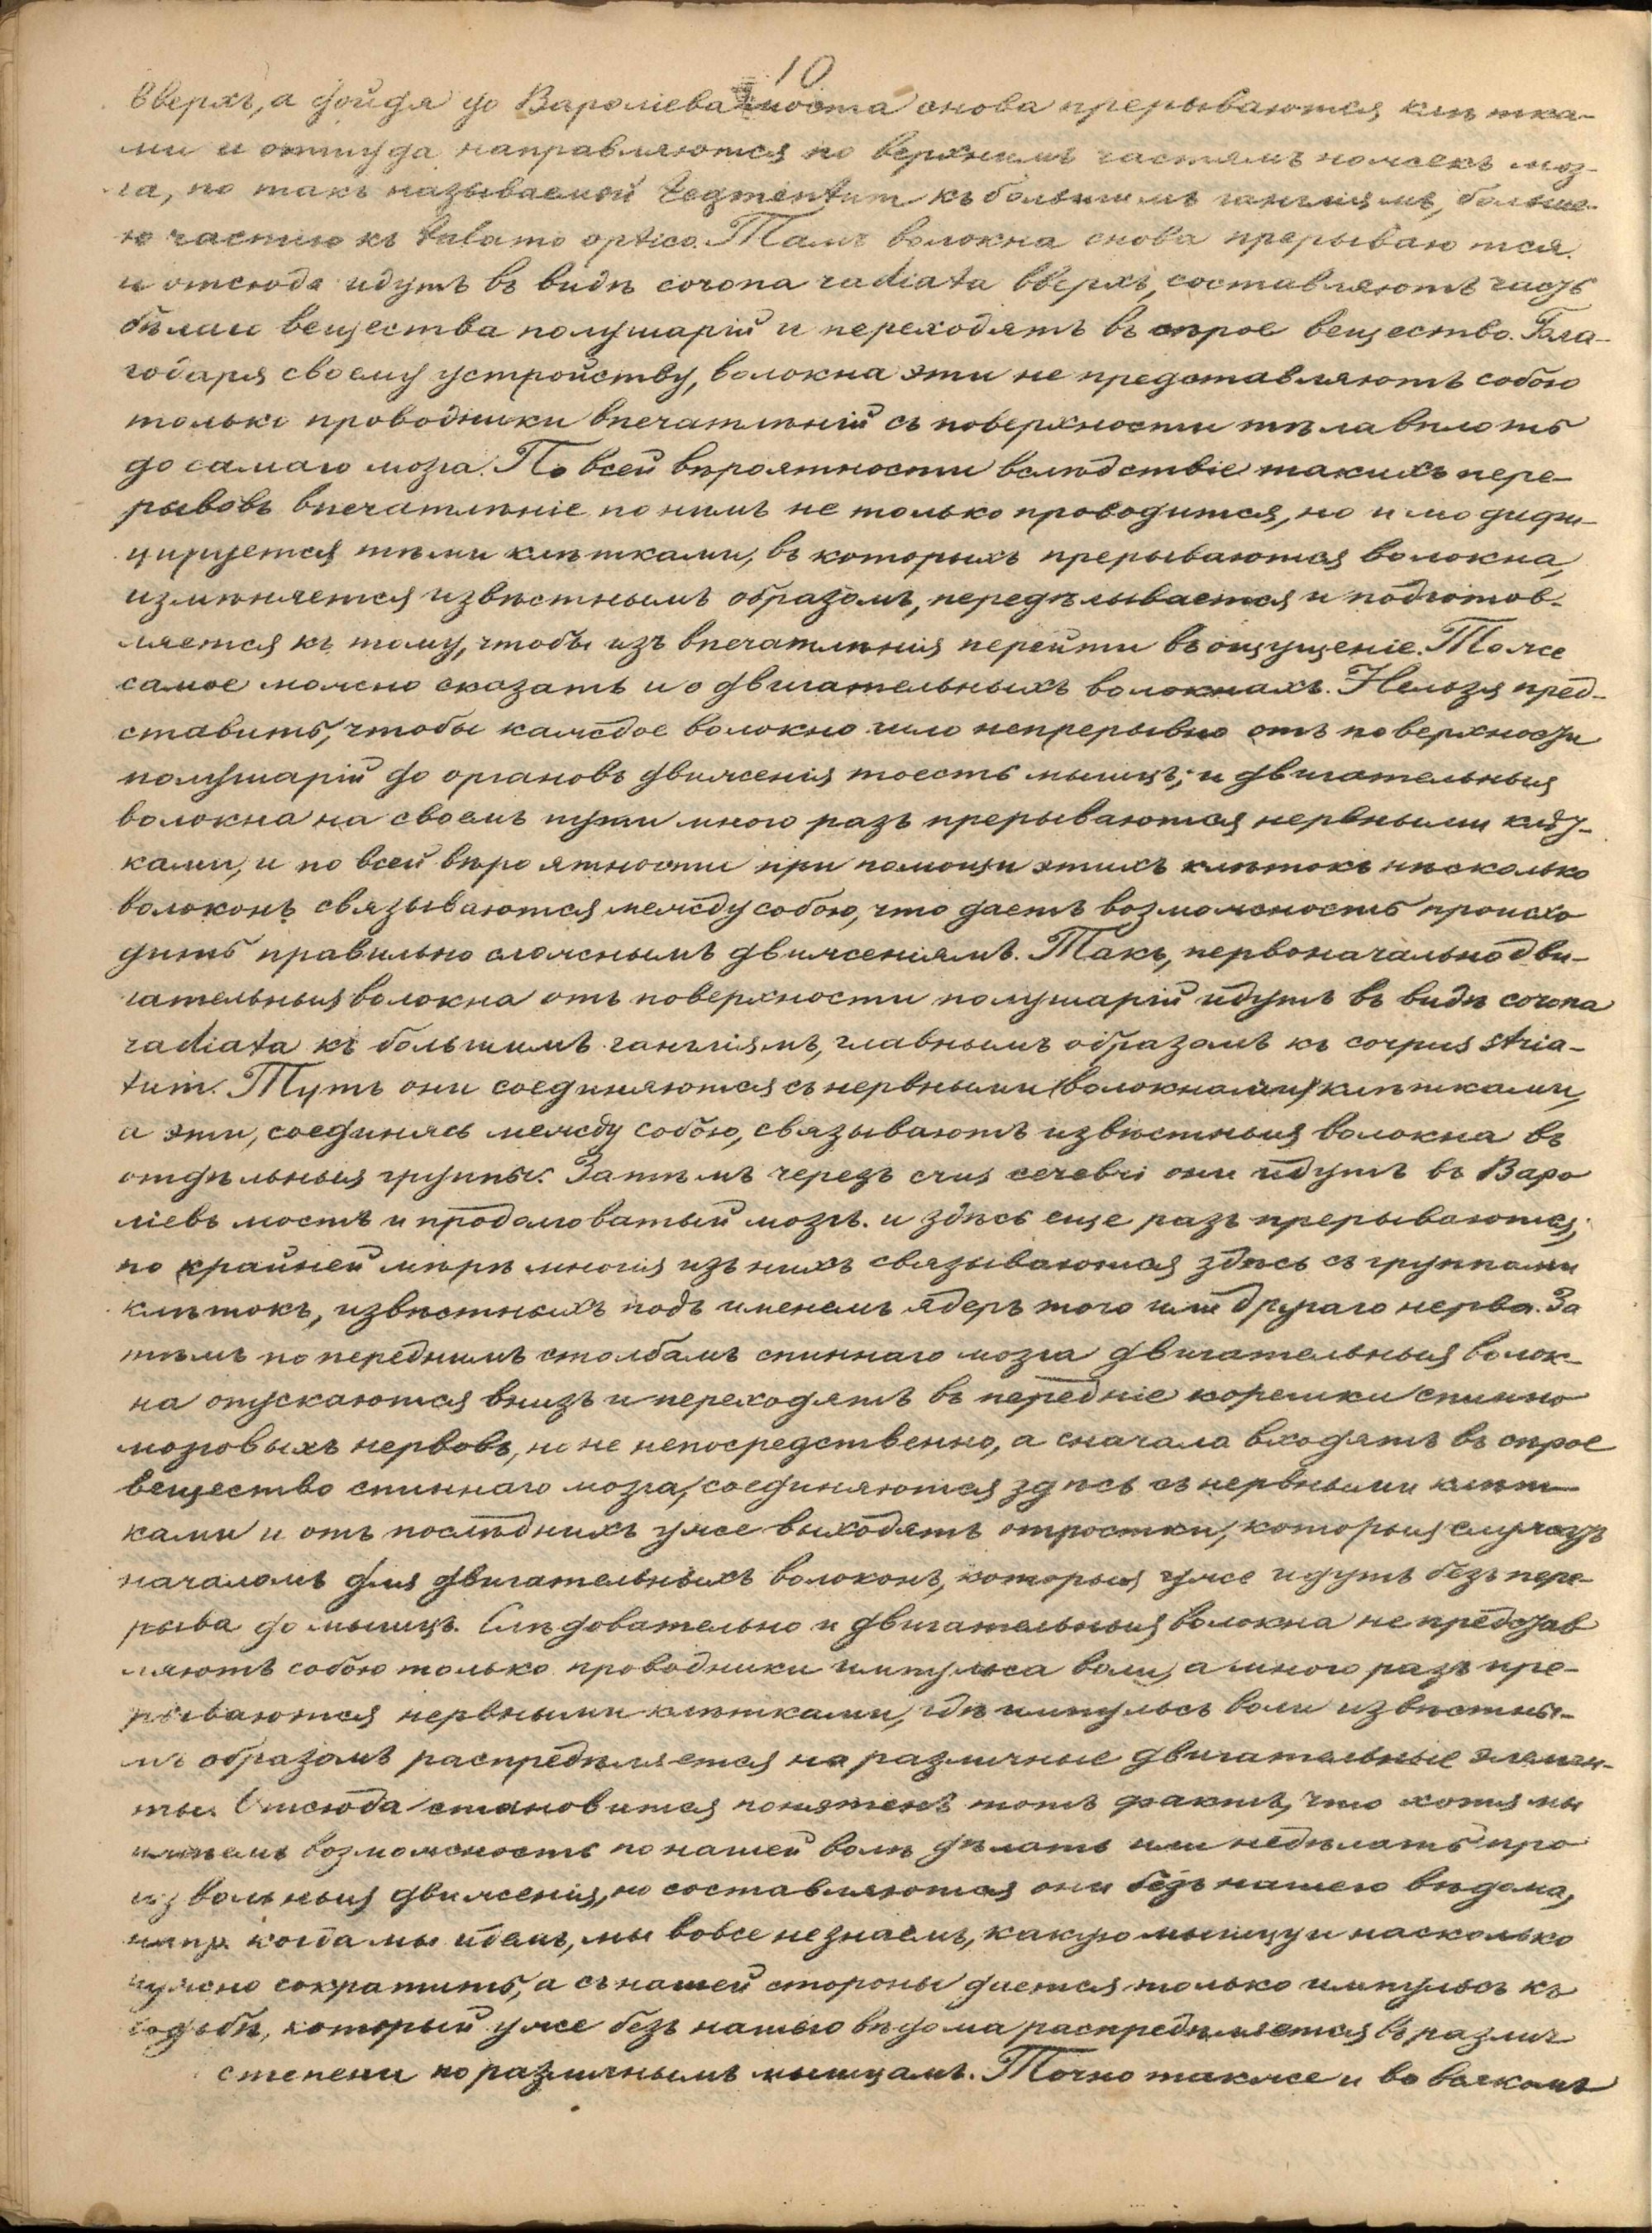 10
вверхъ, а дойдя до Вароліева моста снова прерываются клѣтка-
ми и оттуда направляются по верхнимъ частямъ ножекъ моз-
га, по такъ называемой tegmentum къ большимъ гангліямъ, больше-
ю частію къ talamo optico. Тамъ волокна снова прерываются
и отсюда идутъ въ видѣ corona radiata вверхъ, составляютъ часть
бѣлаго вещества полушарій и переходятъ въ сѣрое вещество. Бла-
годаря своему устройству, волокна эти не представляютъ собою
только проводники впечатлѣній съ поверхности тѣла вплоть
до самаго мозга. По всей вѣроятности вслѣдствіе такихъ пере-
рывовъ впечатлѣніе по нимъ не только проводится, но и модифи-
цируется тѣми клѣтками, въ которыхъ прерываются волокна,
измѣняется извѣстнымъ образомъ, передѣлывается и подготов-
ляется къ тому, чтобы изъ впечатлѣнія перейти въ ощущеніе. Тоже
самое можно сказать и о двигательныхъ волокнахъ. Нельзя пред-
ставить, чтобы каждое волокно шло непрерывно отъ поверхности
полушарій до органовъ движенія тоесть мышцъ; и двигательныя
волокна на своемъ пути много разъ прерываются нервными клѣт-
ками, и по всей вѣроятности при помощи этихъ клѣтокъ нѣсколько
волоконъ связываются между собою, что даетъ возможность происхо
дить правильно сложнымъ движеніямъ. Такъ, первоначально дви-
гательныя волокна отъ поверхности полушарій идутъ въ видѣ corona
radiata къ большимъ гангліямъ, главнымъ образомъ къ corpus stria-
tum. Тутъ они соединяются съ нервными (волокнами) клѣтками,
а эти, соединяясь между собою, связываютъ извѣстныя волокна въ
отдѣльныя группы. Затѣмъ черезъ crus cerebri они идутъ въ Варо
ліевъ мостъ и продолговатый мозгъ. и здѣсь еще разъ прерываются,
по крайней мѣрѣ многія изъ нихъ связываются здѣсь съ группами
клѣтокъ, извѣстныхъ подъ именемъ ядеръ того или другаго нерва. За
тѣмъ по переднимъ столбамъ спиннаго мозга двигательныя волок-
на опускаются внизъ и переходятъ въ передніе корешки спинно
мозговыхъ нервовъ, но не непосредственно, а сначала входятъ въ сѣрое
вещество спиннаго мозга, соединяются здѣсь съ нервными клѣт
ками и отъ послѣднихъ уже выходятъ отростки, которыя служатъ
началомъ для двигательныхъ волоконъ, которыя уже идутъ безъ пере-
рыва до мышцъ. Слѣдовательно и двигательныя волокна не представ
ляютъ собою только проводники импульса воли, а много разъ пре-
рываются нервными клѣтками, гдѣ импульсъ воли извѣстны-
мъ образомъ распредѣляется на различные двигательные элемен-
ты. Отсюда становится понятенъ тотъ фактъ, что хотя мы
имѣемъ возможность по нашей волѣ дѣлать или недѣлать про
извольныя движенія, но составляются они безъ нашего вѣдома,
напр. когда мы идемъ, мы вовсе незнаемъ, какую мышцу и насколько
нужно сократить, а съ нашей стороны дается только импульсъ къ
ходьбѣ, который уже безъ нашего вѣдома распредѣляется въ различ
степени по различнымъ мышцамъ. Точно также и во всякомъ